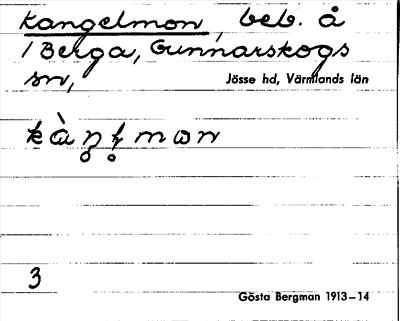 Kangelmon, beb. å
1 Berga, Gunnarskogs
sn,
Jösse hd, Värmlands län
3
Gösta Bergman 1913–14